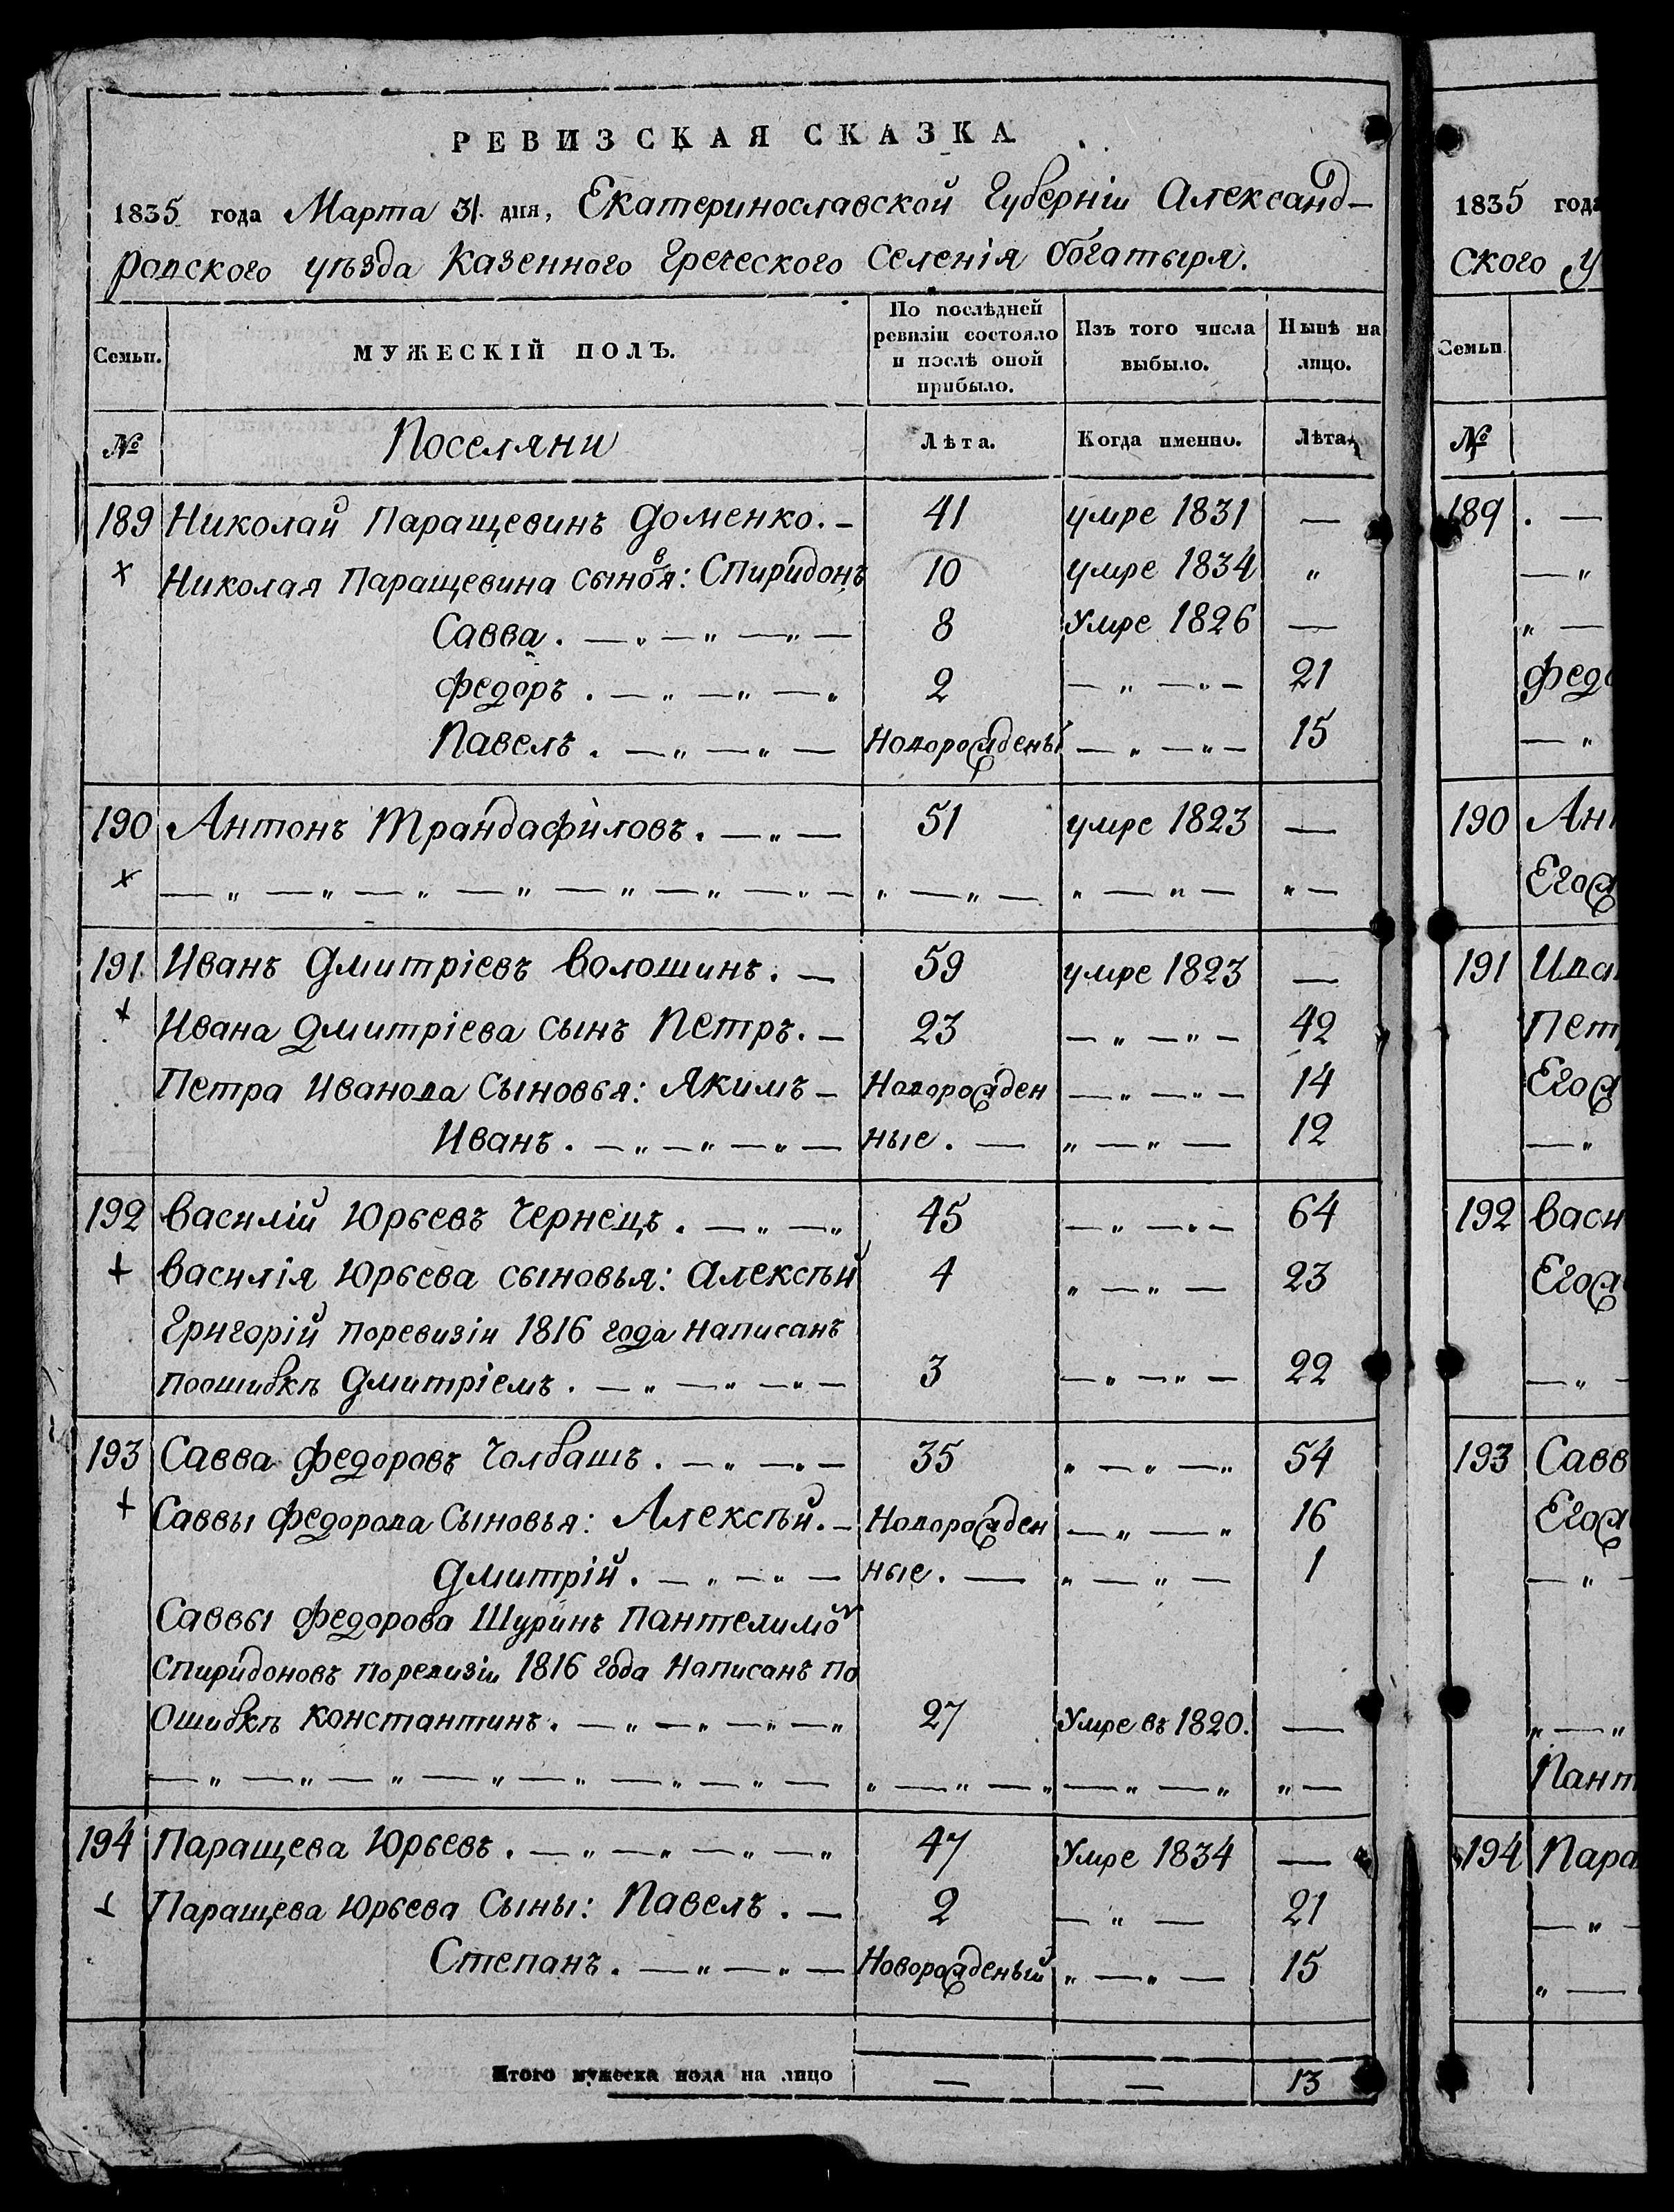 РЕВИЗСКАЯ СКАЗКА
1835 года Марта 31. дня, Екатеринославской Губерніи Александ-
ровского уѣзда Казенного Греческого Селенія Богатыря.
Семьи.
МУЖЕСКІЙ ПОЛЪ.
По послѣдней ревизіи состояло и послѣ оной прибыло.
Изъ того числа выбыло.
Нынѣ на лицо.
№ Поселяни Лѣта. Когда именно. Лѣта.
189 Николай Паращевинъ Доменко. — 41 умре 1831 —
× Николая Паращевина сыновя: Спиридонъ 10 умре 1834 "
Савва. — " — " — " — 8 Умре 1826 —
Федоръ. — " — " — " 2 — " — " — 21
Павелъ. — " — " — Новорожденый — " — " — 15
190 Антонъ Трандафиловъ. — " — 51 умре 1823 —
× — " — " — " — " — " — " — " — " — " — " — " — " —
191 Иванъ Дмитріевъ Волошинъ. — 59 умре 1823 —
+ Ивана Дмитріева сынъ Петръ. — 23 — " — " — 42
Петра Иванова Сыновья: Якимъ — Новорожден — " — " — 14
Иванъ. — " — " — " — ные. — " — " — 12
192 Василій Юрьевъ Чернецъ. — " — " 45 — " — " — 64
+ Василія Юрьева сыновья: Алексѣй 4 " — " — 23
Григорій поревизіи 1816 года написанъ
поошибкѣ Дмитріемъ. — " — " — " — 3 — " — " — 22
193 Савва Федоровъ Чолбашъ. — " — " — 35 " — " — " 54
+ Саввы Федорова Сыновья: Алексѣй. — Новорожден — " — " 16
Дмитрій. — " — " — ные. — " — " — 1
Саввы Федорова Шуринъ Пантелимон
Спиридоновъ поревизіи 1816 года Написанъ по
Ошибкѣ Константинъ. — " — " — " — " 27 Умре въ 1820. —
— " — " — " — " — " — " — " — " — " — " — " — " " —
194 Паращева Юрьевъ. — " — " — " — " 47 Умре 1834 —
+ Паращева Юрьева Сыны: Павелъ. — 2 — " — 21
Степанъ. — " — " — Новорожденый " — " — 15
Итого мужеска пола на лицо — — 13
1835 года
ского у
Семьи
№
189 . —
— "
" —
Федо
— "
190 Ант
Егож
191 Иван
Петр
Егож
— "
192 Васи
Егож
— " —
193 Савв
Егож
— " —
" — "
Пант
194 Пара
— " —
" —